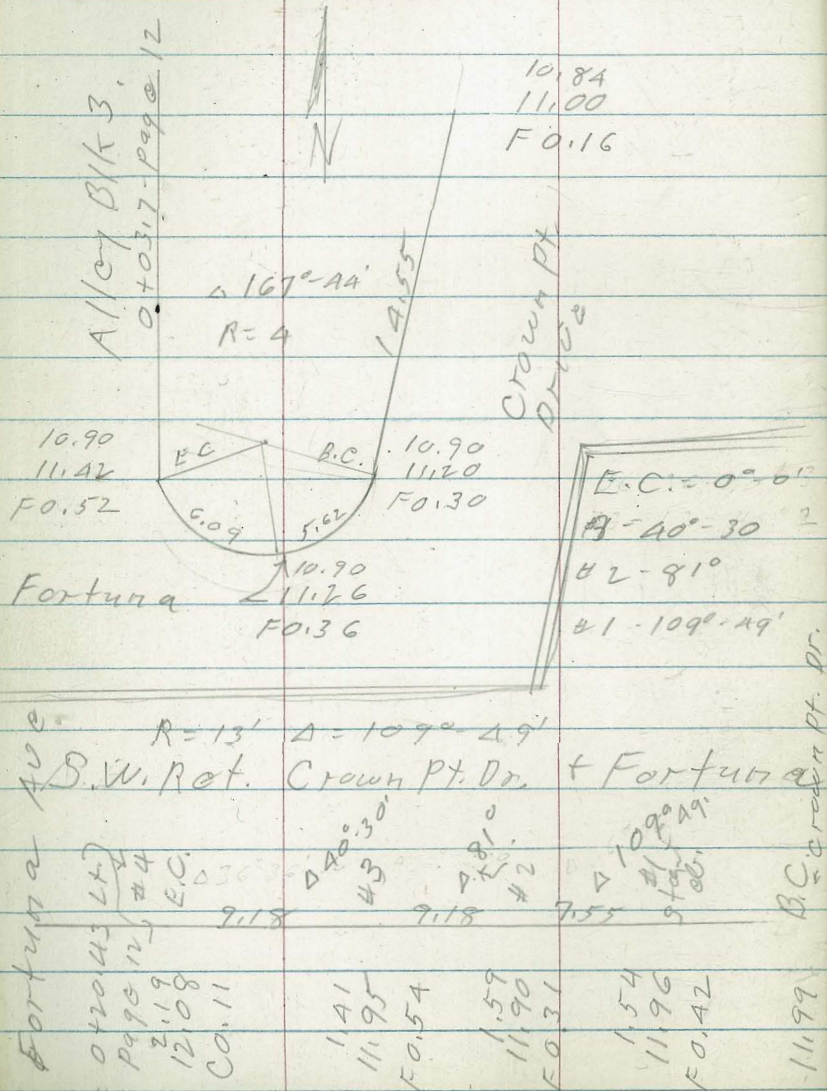 Alley Blk 3
0+03.7 - Page 12
N
10.84
11.00
F 0.16
△ 167°-44'
R = 4
14.55
Crown Pt.
Drive
10.90
11.42
F0.52
E C
B.C.
10.90
11.20
F0.30
6.09
5.62
10.90
11.26
F0.36
Fortuna
E.C. = 0°-0'
40°-30
#2 - 81°
#1 - 109°-49'
R = 13' Δ = 109°-49'
S.W. Ret. Crown Pt. Dr. + Fortuna
Fortuna Ave
0+20.43 Lt.
Page 12
#4
E.C.
2.19
12.08
C0.11
9.18
△ 40°.30'
#3
1.41
11.95
F 0.54
9.18
△ 81°
#2
1.59
11.90
F 0.31
7.55
△ 109°49'
#1
1.54
11.96
F 0.42
B.C. = Crown Pt. Dr.
11.99